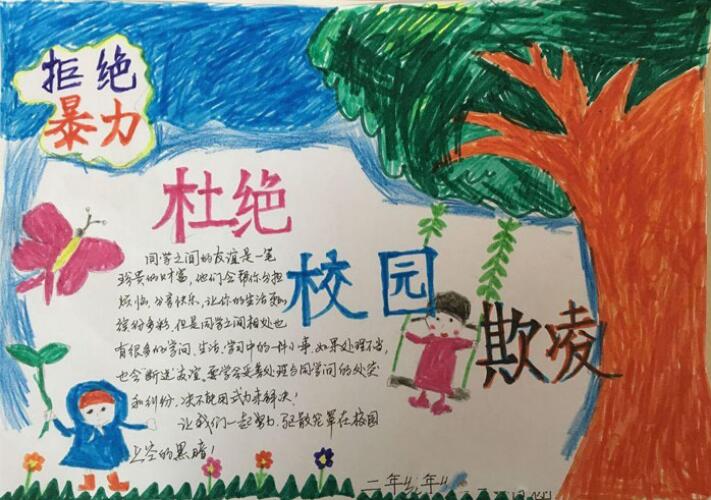 拒绝
暴力
杜绝
校园
欺凌
同学之间的友谊是一笔
珍贵的财富,他们会帮你分担
烦恼,分享快乐,让你的生活更加
缤纷多彩,但是同学之间相处也
有很多的学问,生活、学习中的一件小事,如果处理不当,
也会“断送”友谊。要学会妥善处理与同学间的处突
和纠纷,决不能用武力来解决!
让我们一起努力,驱散笼罩在校园
上空的黑暗!
二年